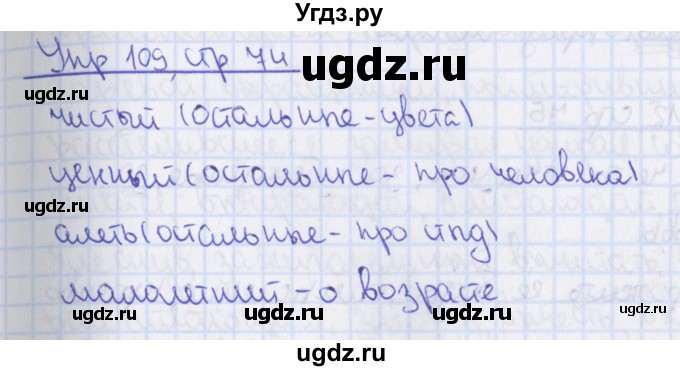 Угдз.ру
Упр 109, стр 74
ugdz.ru
ugdz.ru
ugdz.ru
чистый (остальные - цвета)
ценный (остальные - про человека)
ugdz.ru
ugdz.ru
алеть (остальные - про стыд)
малолетний - о возрасте
ugdz.ru
ugdz.ru
ugdz.ru